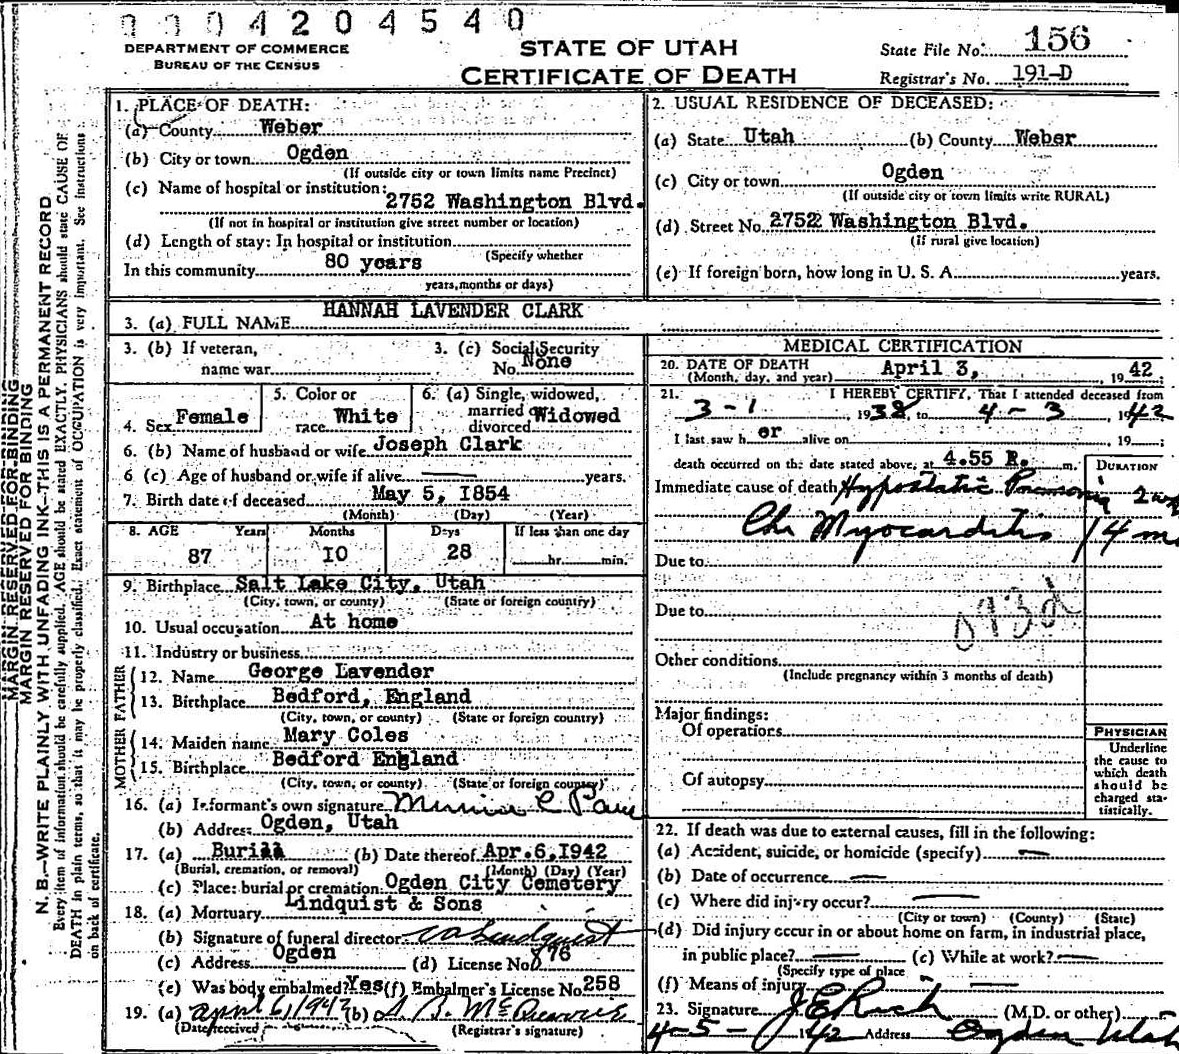 0004204540
DEPARTMENT OF COMMERCE
BUREAU OF THE CENSUS
STATE OF UTAH
CERTIFICATE OF DEATH
State File No. 156
Registrar's No. 191-D
MARGIN RESERVED FOR BINDING
MARGIN RESERVED FOR BINDING
N. B.—WRITE PLAINLY WITH UNFADING INK—THIS IS A PERMANENT RECORD
Every item of information should be carefully supplied. AGE should be stated EXACTLY. PHYSICIANS should state CAUSE OF
DEATH in plain terms, so that it may be properly classified. Exact statement of OCCUPATION is very important. See instructions
on back of certificate.
1. PLACE OF DEATH:
(a) County Weber
(b) City or town Ogden
(If outside city or town limits name Precinct)
(c) Name of hospital or institution:
2752 Washington Blvd.
(If not in hospital or institution give street number or location)
(d) Length of stay: In hospital or institution
(Specify whether
In this community 80 years
years, months or days)
2. USUAL RESIDENCE OF DECEASED:
(a) State Utah (b) County Weber
(c) City or town Ogden
(If outside city or town limits write RURAL)
(d) Street No. 2752 Washington Blvd.
(If rural give location)
(e) If foreign born, how long in U. S. A. years.
3. (a) FULL NAME HANNAH LAVENDER CLARK
3. (b) If veteran, name war
3. (c) Social Security No. None
4. Sex Female
5. Color or race White
6. (a) Single, widowed, married or divorced Widowed
6. (b) Name of husband or wife Joseph Clark
6 (c) Age of husband or wife if alive years.
7. Birth date of deceased May 5, 1854
(Month) (Day) (Year)
8. AGE Years Months Days If less than one day
87 10 28 hr. min.
9. Birthplace Salt Lake City, Utah
(City, town, or county) (State or foreign country)
10. Usual occupation At home
11. Industry or business
FATHER
12. Name George Lavender
13. Birthplace Bedford, England
(City, town, or county) (State or foreign country)
MOTHER
14. Maiden name Mary Coles
15. Birthplace Bedford England
(City, town, or county) (State or foreign country)
16. (a) Informant's own signature
(b) Address Ogden, Utah
17. (a) Burial (b) Date thereof Apr.6,1942
(Burial, cremation, or removal) (Month) (Day) (Year)
(c) Place: burial or cremation Ogden City Cemetery
18. (a) Mortuary Lindquist & Sons
(b) Signature of funeral director Lindquist
(c) Address Ogden (d) License No. 876
(e) Was body embalmed? Yes (f) Embalmer's License No. 258
19. (a) april 6, 1942 (b)
(Date received) (Registrar's signature)
MEDICAL CERTIFICATION
20. DATE OF DEATH April 3, 1942
(Month, day, and year)
21. I HEREBY CERTIFY, That I attended deceased from
3-1 1938 to 4-3 1942
I last saw her alive on , 19
death occurred on the date stated above, at 4.55 P. m.
DURATION
Immediate cause of death Hypostatic Pneumonia 2 wk
Chr Myocarditis 14 m
Due to
Due to
093d
Other conditions
(Include pregnancy within 3 months of death)
Major findings:
Of operations
Of autopsy
PHYSICIAN
Underline
the cause to
which death
should be
charged sta-
tistically.
22. If death was due to external causes, fill in the following:
(a) Accident, suicide, or homicide (specify)
(b) Date of occurrence
(c) Where did injury occur?
(City or town) (County) (State)
(d) Did injury occur in or about home on farm, in industrial place,
in public place? (e) While at work?
(Specify type of place
(f) Means of injury
23. Signature J E Rich (M.D. or other)
4-5-1942 Address Ogden Utah